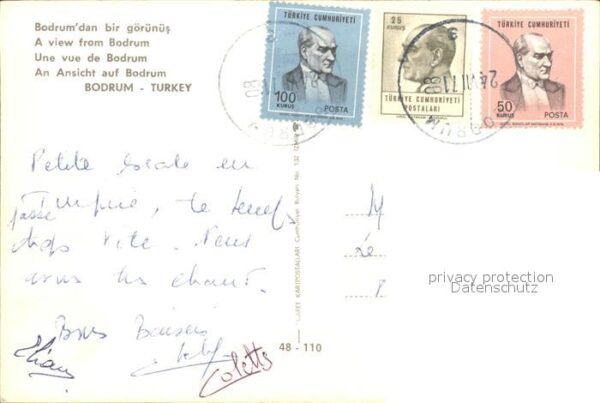 Bodrum'dan bir görünüş
A view from Bodrum
Une vue de Bodrum
An Ansicht auf Bodrum
BODRUM - TURKEY
TÜRKİYE CUMHURİYETİ
100
KURUŞ
POSTA
25
KURUŞ
TÜRKİYE CUMHURİYETİ
POSTALARI
TÜRKİYE CUMHURİYETİ
50
KURUŞ
POSTA
24 VII 71
Petite escale en
Turquie, le temps
passe
trop vite. Nous
avons très chaud.
Bons Baisers
Colette
KARTPOSTALLARI Cumhuriyet Bulvarı No. 132
48 - 110
privacy protection
Datenschutz